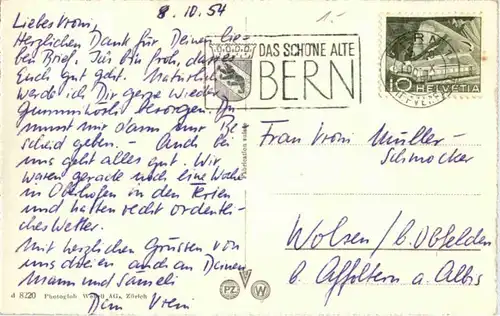 8. 10. 54
Liebes Vroni,
Herzlichen Dank für Deinen lie-
ben Brief. Ich bin froh, dass es
Euch gut geht. Natürlich
werde ich Dir gerne wieder
besorgen. Du
musst mir dann nur Be-
scheid geben. - Auch bei
uns geht alles gut. Wir
waren gerade noch eine Woche
in Oberhofen in den Ferien
und hatten recht ordentli-
ches Wetter.
Mit herzlichen Grüssen von
uns dreien auch an Deinen
Mann und Sameli
Dein Vreni
d 8220 Photoglob Wehrli AG., Zürich
Fabrication suisse
PZ W
DAS SCHÖNE ALTE
BERN
10 HELVETIA
Frau Vroni Müller-
Schmocker
Wolsen / b. Obfelden
b. Affoltern a. Albis